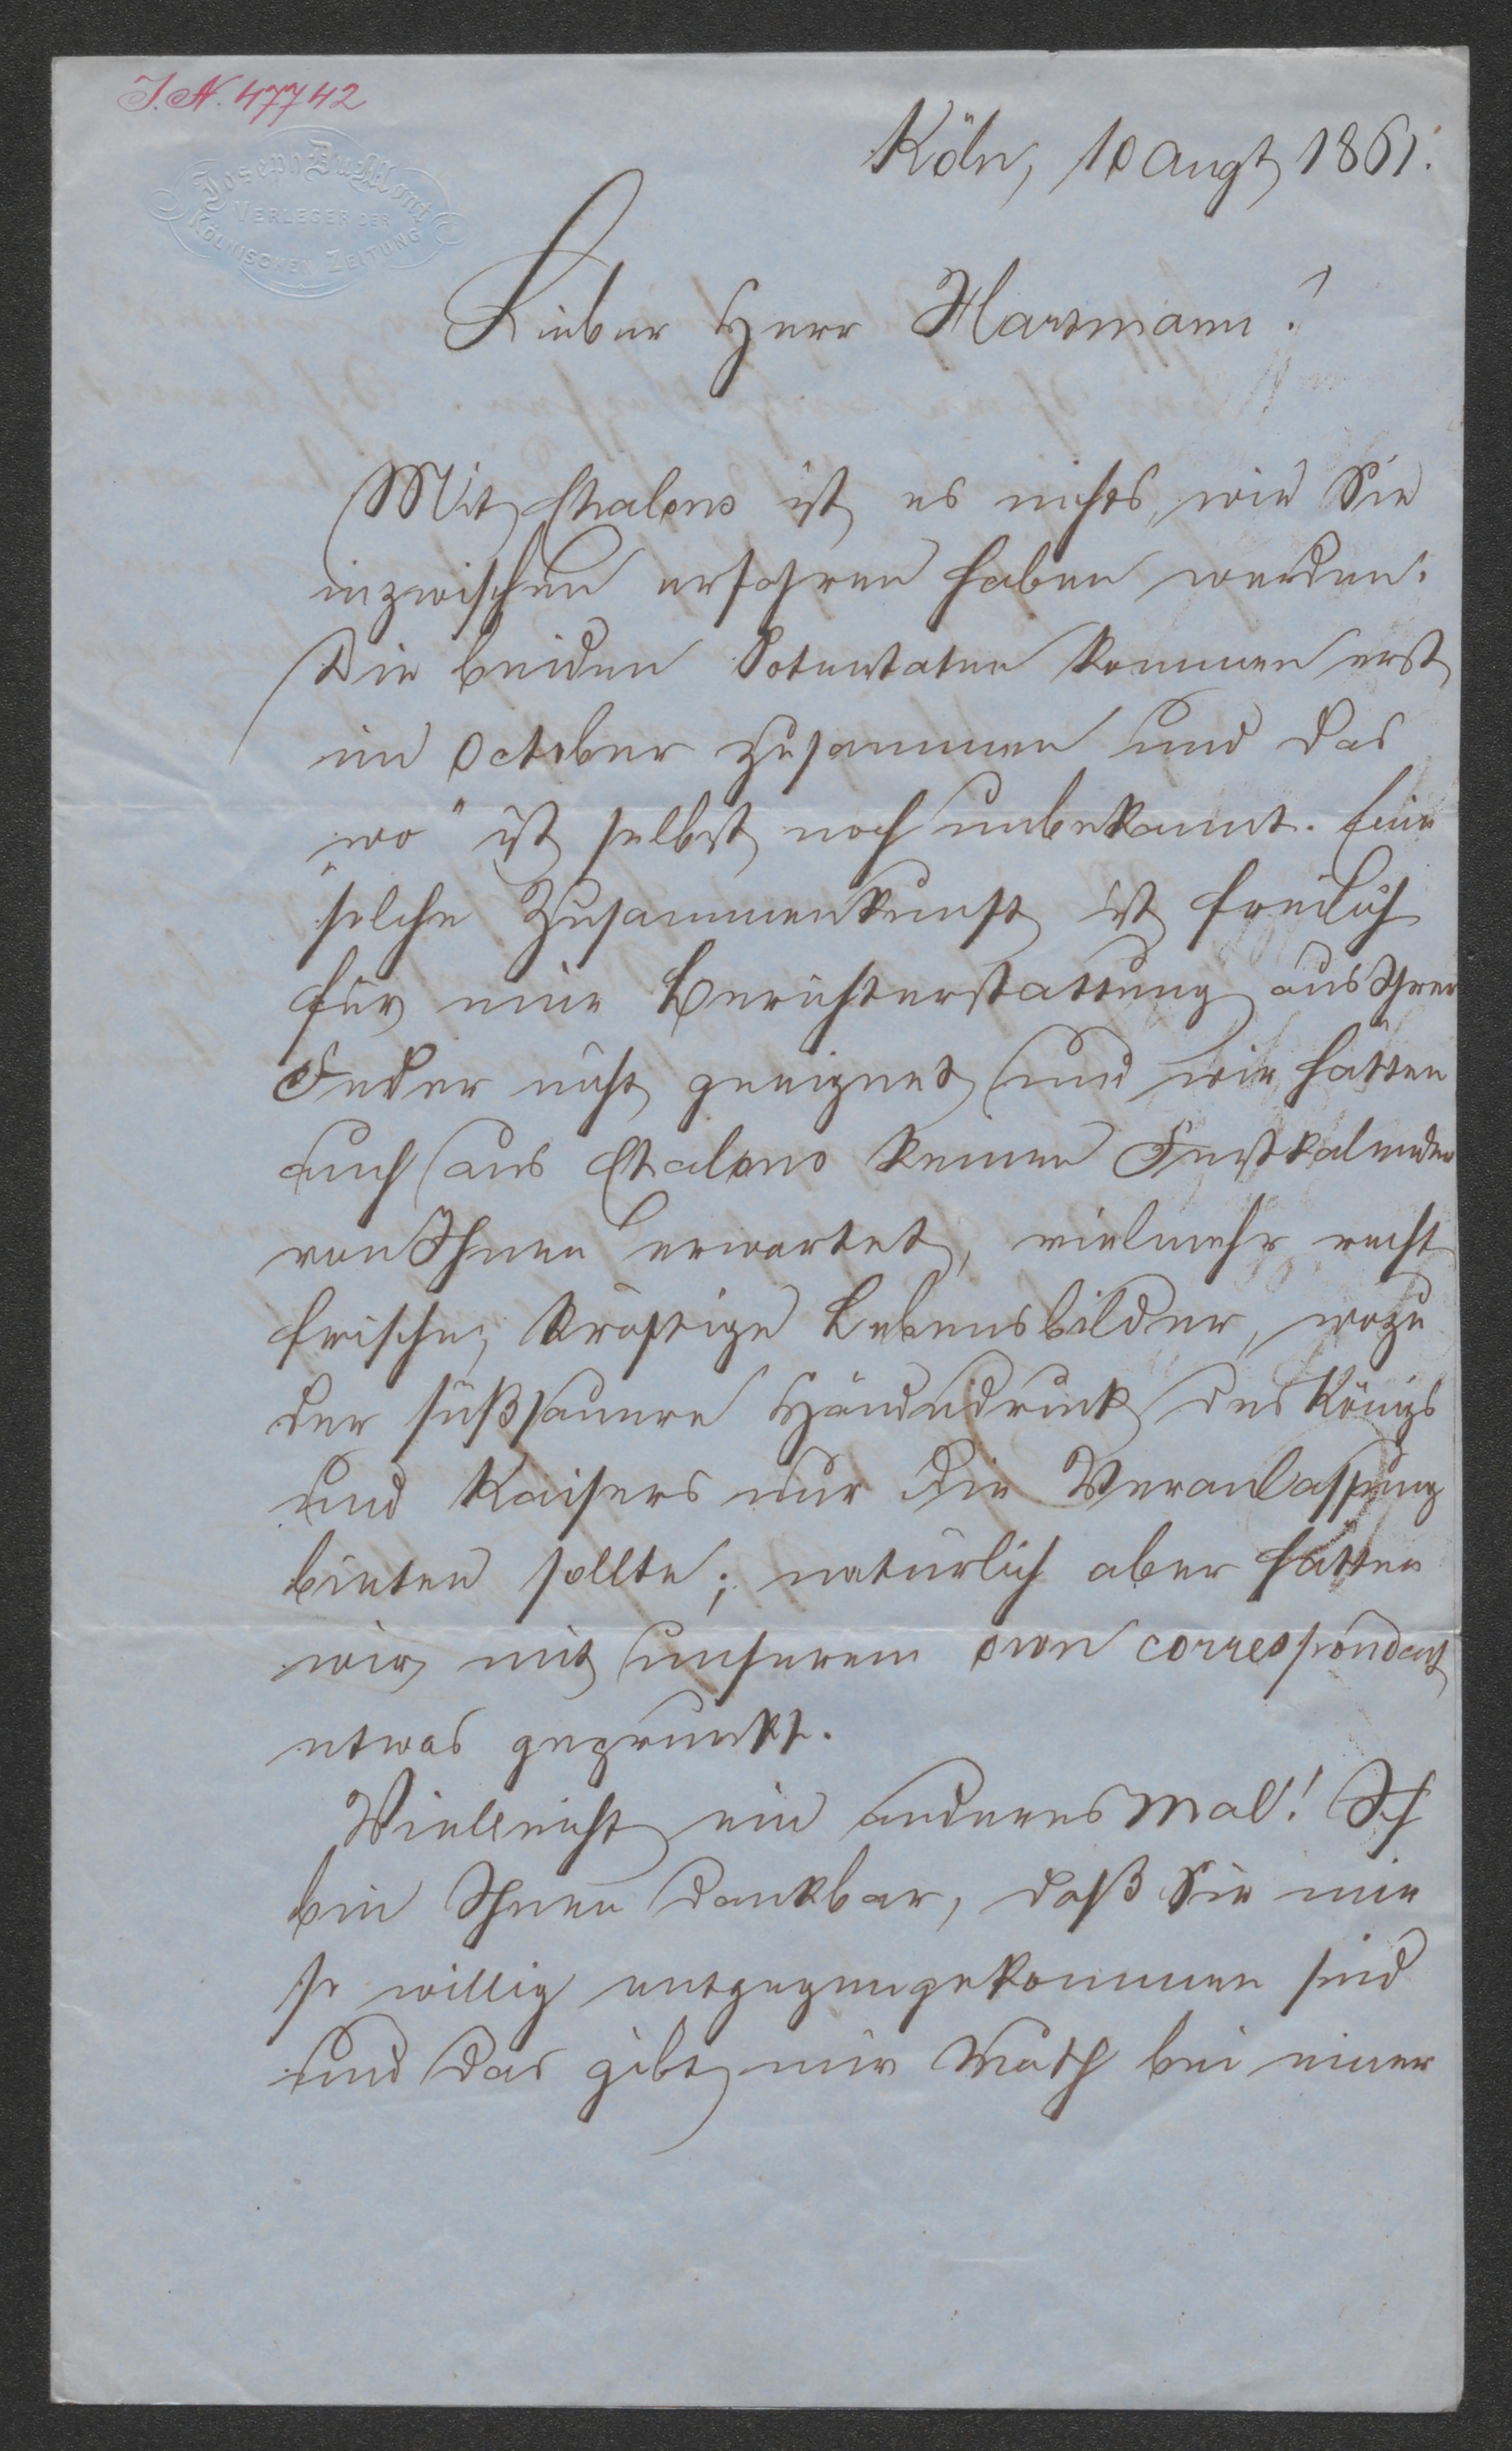 J.N. 47742
Joseph DuMont
VERLEGER DER
KÖLNISCHEN ZEITUNG
Köln, 10 Augt 1861.
Lieber Herr Hartmann!
Mit Chalons ist es nichts, wie Sie
inzwischen erfahren haben werden.
Die beiden Potentaten kommen erst
im October zusammen und das
„wo" ist selbst noch unbekannt. Eine
solche Zusammenkunft ist freilich
für eine Berichterstattung aus Ihrer
Feder nicht geeignet und wir hatten
auch aus Chalons keinen Festkalender
von Ihnen erwartet, vielmehr recht
frische, kräftige Lebensbilder, wozu
der süßsauere Händedruck des Königs
und Kaisers nur die Veranlassung
bieten sollte; natürlich aber hätten
wir mit unserem own correspondent
etwas geprunkt.
Vielleicht ein anderes Mal! Ich
bin Ihnen dankbar, daß Sie mir
so willig entgegengekommen sind
und das gibt mir Muth bei einer